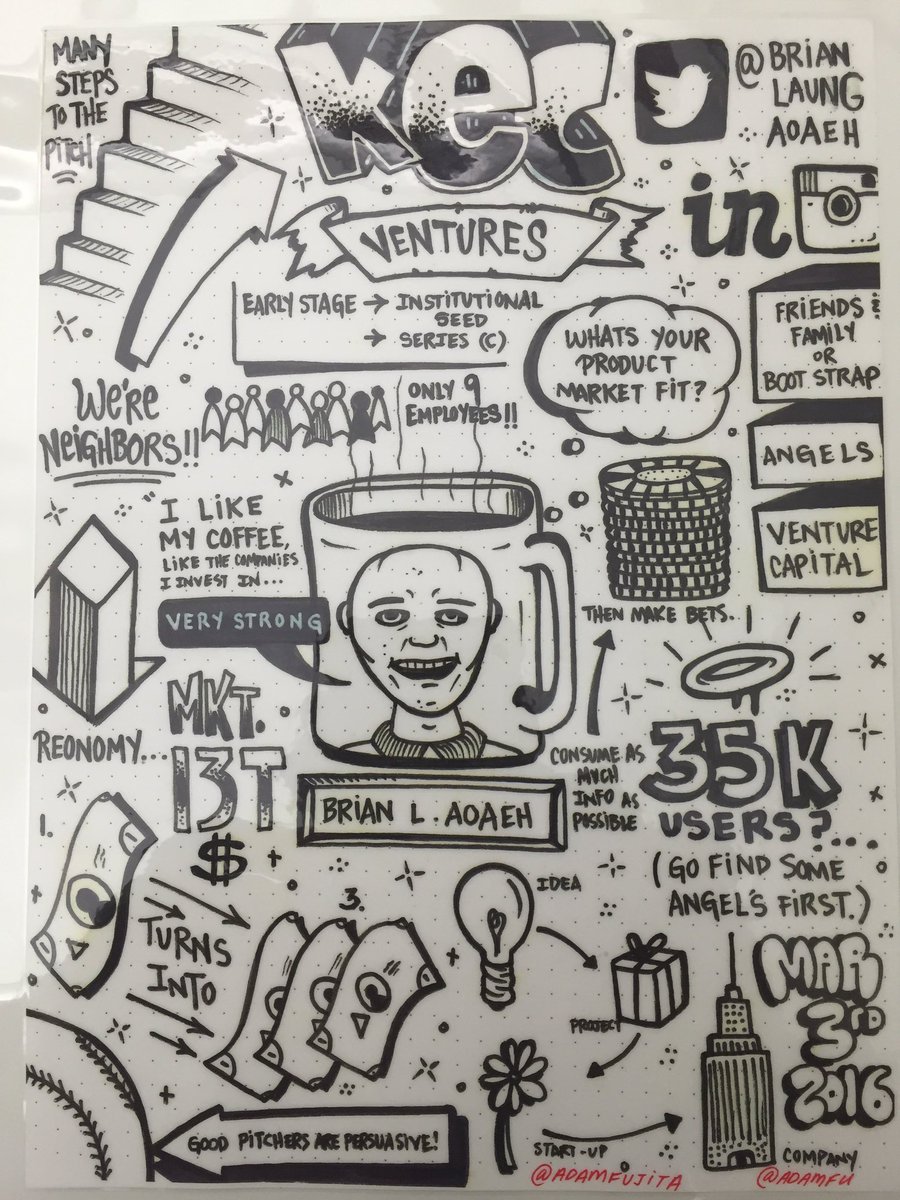 MANY
STEPS
TO THE
PITCH
KEC
VENTURES
@BRIAN
LAUNG
AOAEH
in
EARLY STAGE → INSTITUTIONAL
SEED
→ SERIES (C)
WHATS YOUR
PRODUCT
MARKET FIT?
FRIENDS
FAMILY
OR
BOOT STRAP
ANGELS
VENTURE
CAPITAL
WE'RE
NEIGHBORS!!
ONLY 9
EMPLOYEES!!
I LIKE
MY COFFEE,
LIKE THE COMPANIES
I INVEST IN...
VERY STRONG
THEN MAKE BETS.
REONOMY...
MKT.
13T
$
BRIAN L. AOAEH
CONSUME AS
MUCH
INFO AS
POSSIBLE
35K
USERS?...
(GO FIND SOME
ANGEL'S FIRST.)
1.
TURNS
INTO
3.
IDEA
PROJECT
START-UP
COMPANY
MAR
3RD
2016
GOOD PITCHERS ARE PERSUASIVE!
@ADAMFUJITA
@ADAMFU